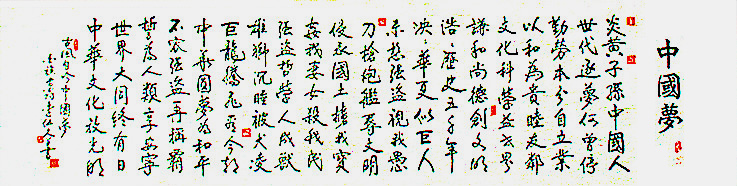 中國夢
炎黃子孫中國人
世代逐夢何曾停
勤勞本分自立業
以和為貴睦友鄰
文化科學益世界
謙和尚德創文明
浩〻歷史五千年
泱〻華夏似巨人
未想強盜視我愚
刀槍炮艦辱文明
侵我國土擄我寶
姦我妻女殺我民
強盜哲學人成獸
雄獅沉睡被犬凌
巨龍騰飛看今朝
中華國夢為和平
不容強盜再稱霸
誓為人類享安寧
世界大同終有日
中華文化放光明
古風自吟中國夢